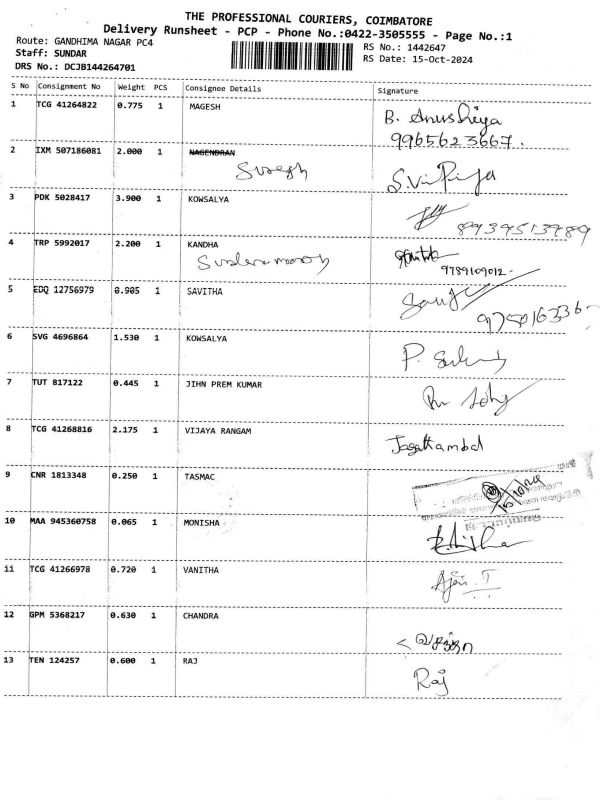 THE PROFESSIONAL COURIERS, COIMBATORE
Delivery Runsheet - PCP - Phone No.:0422-3505555 - Page No.:1
Route: GANDHIMA NAGAR PC4
RS No.: 1442647
Staff: SUNDAR
RS Date: 15-Oct-2024
DRS No.: DCJB144264701
S No Consignment No Weight PCS Consignee Details Signature
1 TCG 41264822 0.775 1 MAGESH B. Anushiya
9965623667.
2 IXM 507186081 2.000 1 NAGENDRAN
Suresh
3 PDK 5028417 3.900 1 KOWSALYA
4 TRP 5992017 2.200 1 KANDHA
9789109012-
5 EDQ 12756979 0.905 1 SAVITHA
6 SVG 4696864 1.530 1 KOWSALYA
7 TUT 817122 0.445 1 JIHN PREM KUMAR
8 TCG 41268816 2.175 1 VIJAYA RANGAM
Jagathambal
9 CNR 1813348 0.250 1 TASMAC
15/10/24
10 MAA 945360758 0.065 1 MONISHA
11 TCG 41266978 0.720 1 VANITHA
12 GPM 5368217 0.630 1 CHANDRA
13 TEN 124257 0.600 1 RAJ
Raj